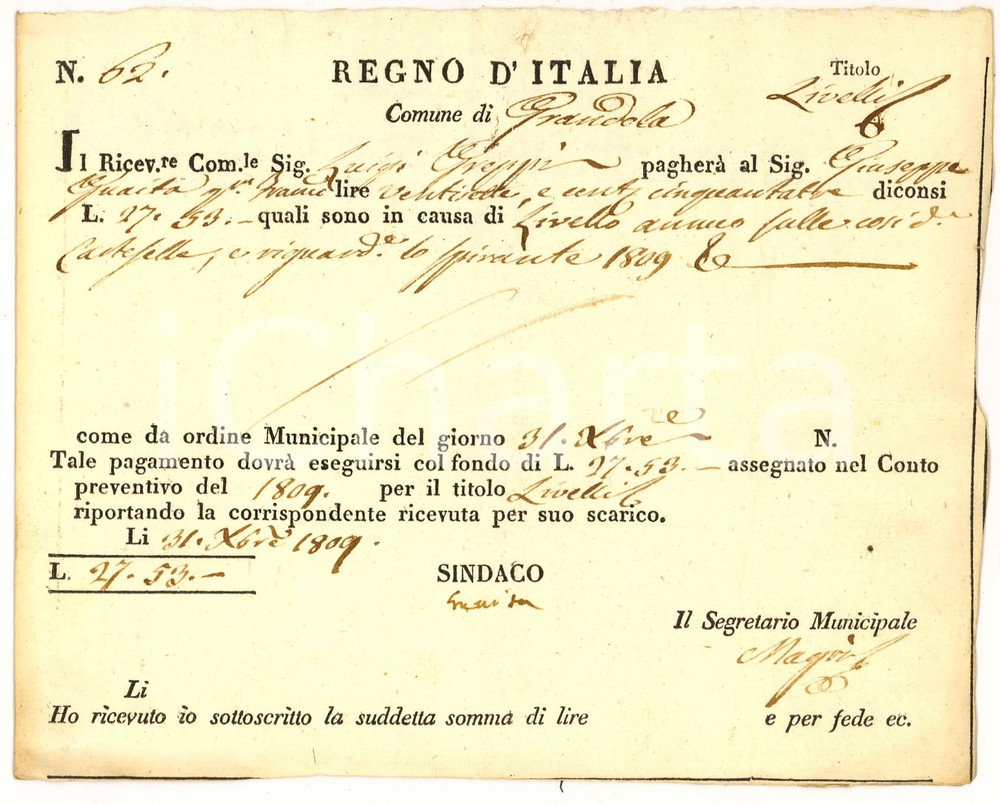 N. 62. REGNO D'ITALIA Titolo
Comune di Grandola Livelli
Il Ricev.re Com.le Sig. Luigi Greppi pagherà al Sig. Giuseppe
Guaita lire, e cent. cinquantatre diconsi
L. 27. 53.- quali sono in causa di Livello annuo sulle cosi d.e
Casteselle, e riguard.e lo spirante 1809
iCharta
come da ordine Municipale del giorno 31. Xbre N.
Tale pagamento dovrà eseguirsi col fondo di L. 27. 53.- assegnato nel Conto
preventivo del 1809. per il titolo Livelli
riportando la corrispondente ricevuta per suo scarico.
Li 31. Xbre 1809.
L. 27. 53.- SINDACO
Il Segretario Municipale
Li
Ho ricevuto io sottoscritto la suddetta somma di lire e per fede ec.